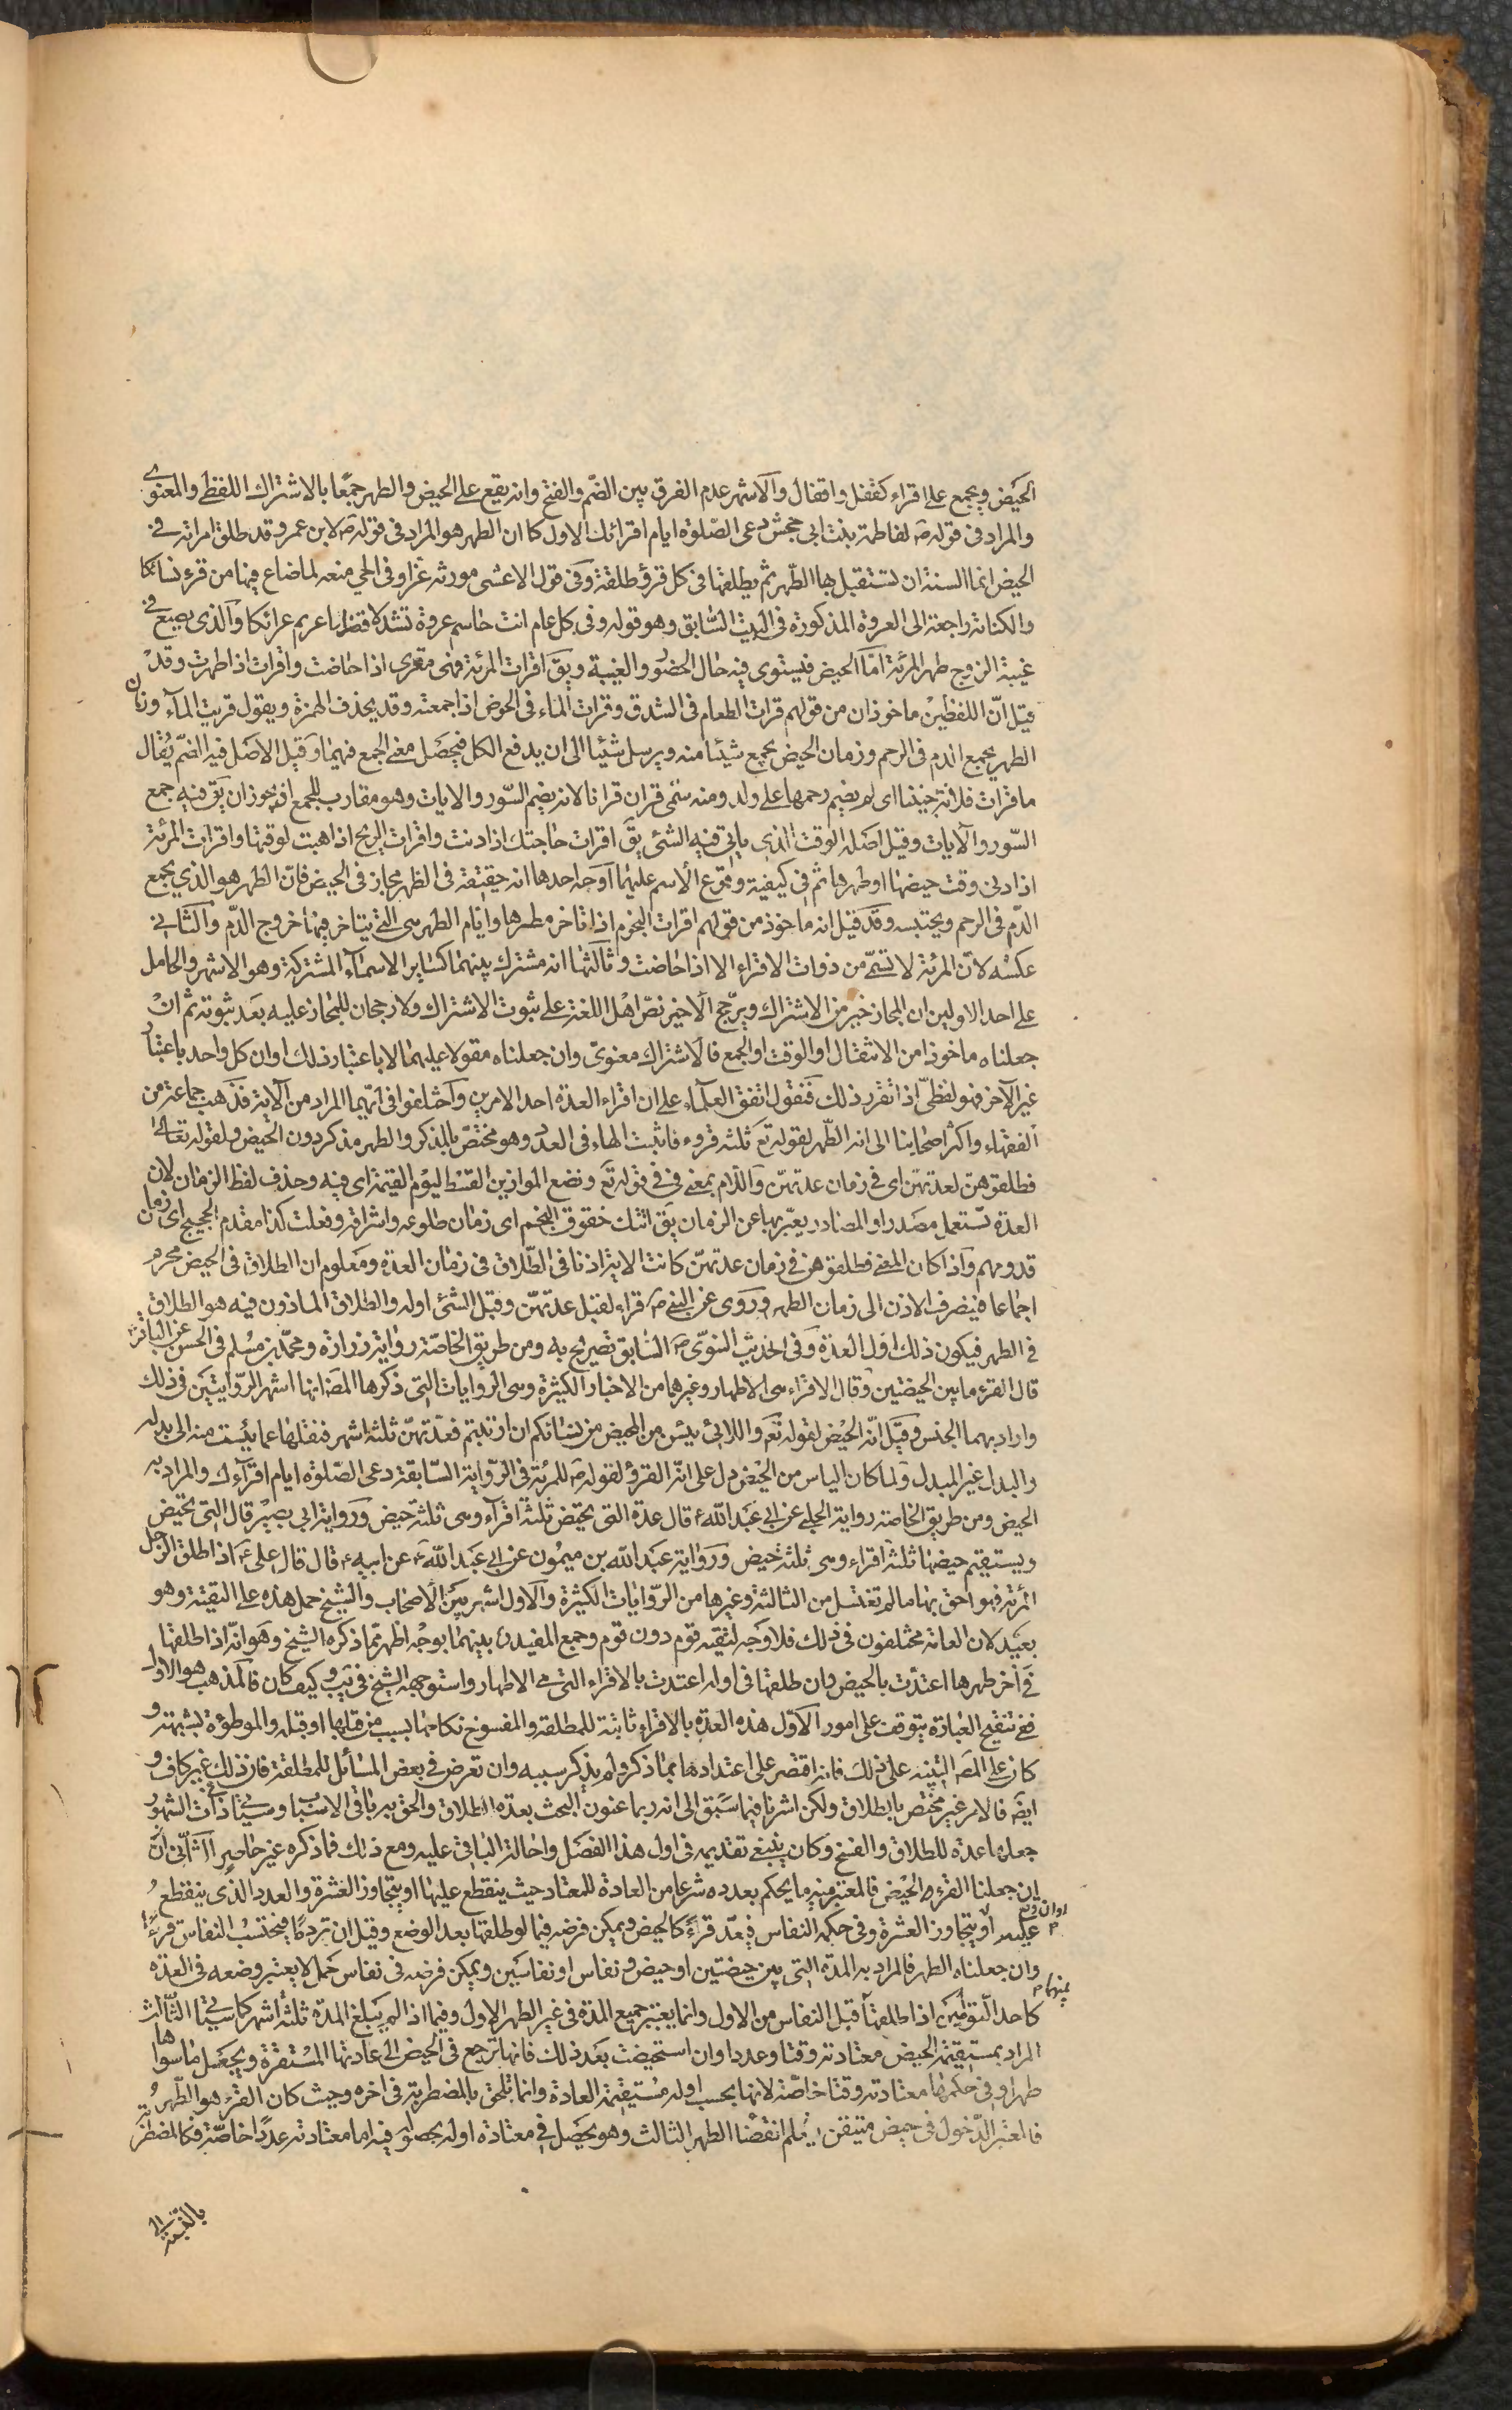 الحيض ويجمع على اقراء كقفل واقفال والاشهر عدم الفرق بين الضم والفتح وانه يقع على الحيض والطهر جمعا بالاشتراك اللفظى والمعنوى
والمراد فى قوله ص لفاطمة بنت ابى حبش دعى الصلوة ايام اقرائك الاول كما ان الطهر هو المراد فى قوله ص لابن عمر وقد طلق امراته فى
الحيض انما السنة ان تستقبل بها الطهر ثم يطلقها فى كل قرؤ طلقة وفى قول الاعشى مورثه عزا وفى الحى منعه لما ضاع فيها من قرء نسائكا
والكناية راجعة الى العروة المذكورة فى البيت السابق وهو قوله وفى كل عام انت جاسم عروة تشد لاقصاها عريم عرائكا والذى يضيع فى
غيبة الزوج طهر المرئة اما الحيض فيستوى فيه حال الحضور والغيبة ويق اقرات المرئة فهى مقرى اذا حاضت واقرات اذا طهرت وقد
قيل ان اللفظين ماخوذان من قولهم قرات الطعام فى الشدق وقرات الماء فى الحوض اذا جمعته وقد يحذف الهمزة ويقول قريت الماء وزمان
الطهر يجمع الدم فى الرحم وزمان الحيض يجمع شيئا منه ويرسل شيئا الى ان يدفع الكل فيحصل معنى الجمع فيهما وقيل الاصل فيه الضم يقال
ما قرات فلانة جنينا اى لم يضم رحمها على ولد ومنه سمى قران قرانا لانه يضم السور والايات وهو مقارب للجمع اذ يجوز ان يق فيه جمع
السور والايات وقيل اصله الوقت الذى ياتى فيه الشئ يق اقرات حاجتك اذا دنت واقرات الريح اذا هبت لوقتها واقرات المرئة
اذا دنى وقت حيضها او طهرها ثم فى كيفية وقوع الاسم عليهما اوجه احدها انه حقيقة فى الطهر مجاز فى الحيض فان الطهر هو الذى يجمع
الدم فى الرحم ويحتبسه وقد قيل انه ماخوذ من قولهم اقرات النجوم اذا تاخر مطرها وايام الطهر هى التى يتاخر فيها خروج الدم والثانى
عكسه لان المرئة لا تسمى من ذوات الاقراء الا اذا حاضت وثالثها انه مشترك بينهما كساير الاسماء المشتركة وهو الاشهر والحامل
على احد الاولين ان المجاز خير من الاشتراك ويرجح الاخير نص اهل اللغة على ثبوت الاشتراك ولا رجحان للمجاز عليه بعد ثبوته ثم ان
جعلناه ماخوذا من الانتقال او الوقت او الجمع فالاشتراك معنوى وان جعلناه مقولا عليهما لا باعتبار ذلك او ان كل واحد باعتبار
غير الاخر فهو لفظى اذا تقرر ذلك فنقول اتفق العلماء على ان اقراء العدة احد الامرين واختلفوا فى ايهما المراد من الاية فذهب جماعة من
الفقهاء واكثر اصحابنا الى انه الطهر لقوله تع ثلثه قروء فاثبت الهاء فى العدد وهو مختص بالمذكر والطهر مذكر دون الحيض ولقوله تعالى
فطلقوهن لعدتهن اى فى زمان عدتهن واللام بمعنى فى فى قوله تع ونضع الموازين القسط ليوم القيمة اى فيه وحذف لفظ الزمان لان
العدة تستعمل مصدرا والمصادر يعبر بها عن الزمان يق اتيك خفوق النجم اى زمان طلوعه واشراقه وفعلت كذا مقدم الحجيج اى زمان
قدومهم واذا كان المعنى فطلقوهن فى زمان عدتهن كانت الاية اذنا فى الطلاق فى زمان العدة ومعلوم ان الطلاق فى الحيض محرم
اجماعا فينصرف الاذن الى زمان الطهر وروى عن النبى ص قراء لقبل عدتهن وقبل الشئ اوله والطلاق الماذون فيه هو الطلاق
فى الطهر فيكون ذلك اول العدة وفى الحديث النبوى ص السابق تصريح به ومن طريق الخاصة رواية زرارة ومحمد بن مسلم فى الحسن عن الباقر
قال القرء ما بين الحيضتين وقال الاقراء هى الاطهار وغيرهما من الاخبار الكثيرة وهى الروايات التى ذكرها المص انها اشهر الروايتين فى ذلك
واراد بهما الجنس وقيل انه الحيض لقوله تع واللائى يئسن من المحيض من نسائكم ان ارتبتم فعدتهن ثلثة اشهر فنقلها عما يئست منه الى بدله
والبدل غير المبدل ولما كان الياس من الحيض دل على انه القرؤ لقوله ص للمرئة فى الرواية السابقة دعى الصلوة ايام اقراءك والمراد به
الحيض ومن طريق الخاصة رواية الحلبى عن ابى عبد الله ع قال عدة التى تحيض ثلثة اقراء وهى ثلثة حيض ورواية ابى بصير قال التى تحيض
ويستقيم حيضها ثلثة اقراء وهى ثلثة حيض ورواية عبد الله بن ميمون عن ابى عبد الله ع عن ابيه ع قال قال على ع اذا طلق الرجل
المرئة فهو احق بها ما لم تغتسل من الثالثة وغيرها من الروايات الكثيرة والاول اشهر بين الاصحاب والشيخ حمل هذه على التقية وهو
بعيد لان العامة مختلفون فى ذلك فلا وجه لتقية قوم دون قوم وجمع المفيد ره بينهما بوجه اظهر مما ذكره الشيخ وهو انه اذا طلقها
فى اخر طهرها اعتدت بالحيض وان طلقها فى اوله اعتدت بالاقراء التى هى الاطهار واستوجهه الشيخ فى يب وكيف كان فالمذهب هو الاول
فع تنقيح العبارة يتوقف على امور الاول هذه العدة بالاقراء ثابتة للمطلقة والمفسوخ نكاحها بسبب من قبلها او قبله والموطؤة بشبهة و
كان على المص التنبيه على ذلك فانه اقتصر على اعتدادها بما ذكر ولم يذكر سببه وان تعرض فى بعض المسائل للمطلقة فان ذلك غير كاف و
ايضا فالامر غير مختص بالطلاق ولكن اشرنا فيما سبق الى انه ربما عنون البحث بعدة الطلاق والحق به باقى الاسباب وسيتا ذات الشهور
جعلها عدة للطلاق والفسخ وكان ينبغى تقديمه فى اول هذا الفصل واحالة الباقى عليه ومع ذلك فما ذكره غير حاصر الثانى ان
ان جعلنا القرء الحيض فالمعتبر منه ما يحكم بعدده شرعا من العادة للمعتاد حيث ينقطع عليها او يتجاوز العشرة والعدد الذى ينقطع
عليه او يتجاوز العشرة وفى حكمه النفاس فيعد قراء كالحيض ويمكن فرضه فيما لو طلقها بعد الوضع وقبل ان ترد ما فيحتسب النفاس قرءا
وان جعلناه الطهر فالمراد به المدة التى بين حيضتين او حيض ونفاس او نفاسين ويمكن فرضه فى نفاس حمل لا يعتبر وضعه فى العدة
كاحد التوامين اذا طلقها قبل النفاس من الاول وانما يعتبر جميع المدة فى غير الطهر الاول وفيما اذا لم يبلغ المدة ثلثة اشهر كما سيئ الثالث
المراد بمستقيمة الحيض معتادته وقتا وعددا وان استحيضت بعد ذلك فانها ترجع فى الحيض الى عادتها المستقرة ويجعل ما سواها
طهرا وفى حكمها معتادته وقتا خاصة لانها بحسب اوله مستقيمة العادة وانما تلحق بالمضطربة فى اخره وحيث كان القرء هو الطهر
فالمعتبر الدخول فى حيض متيقن ليعلم انقضاء الطهر الثالث وهو يحصل فى معتادة اوله بحصوله فيه اما معتادته عددا خاصة فكالمضطربة